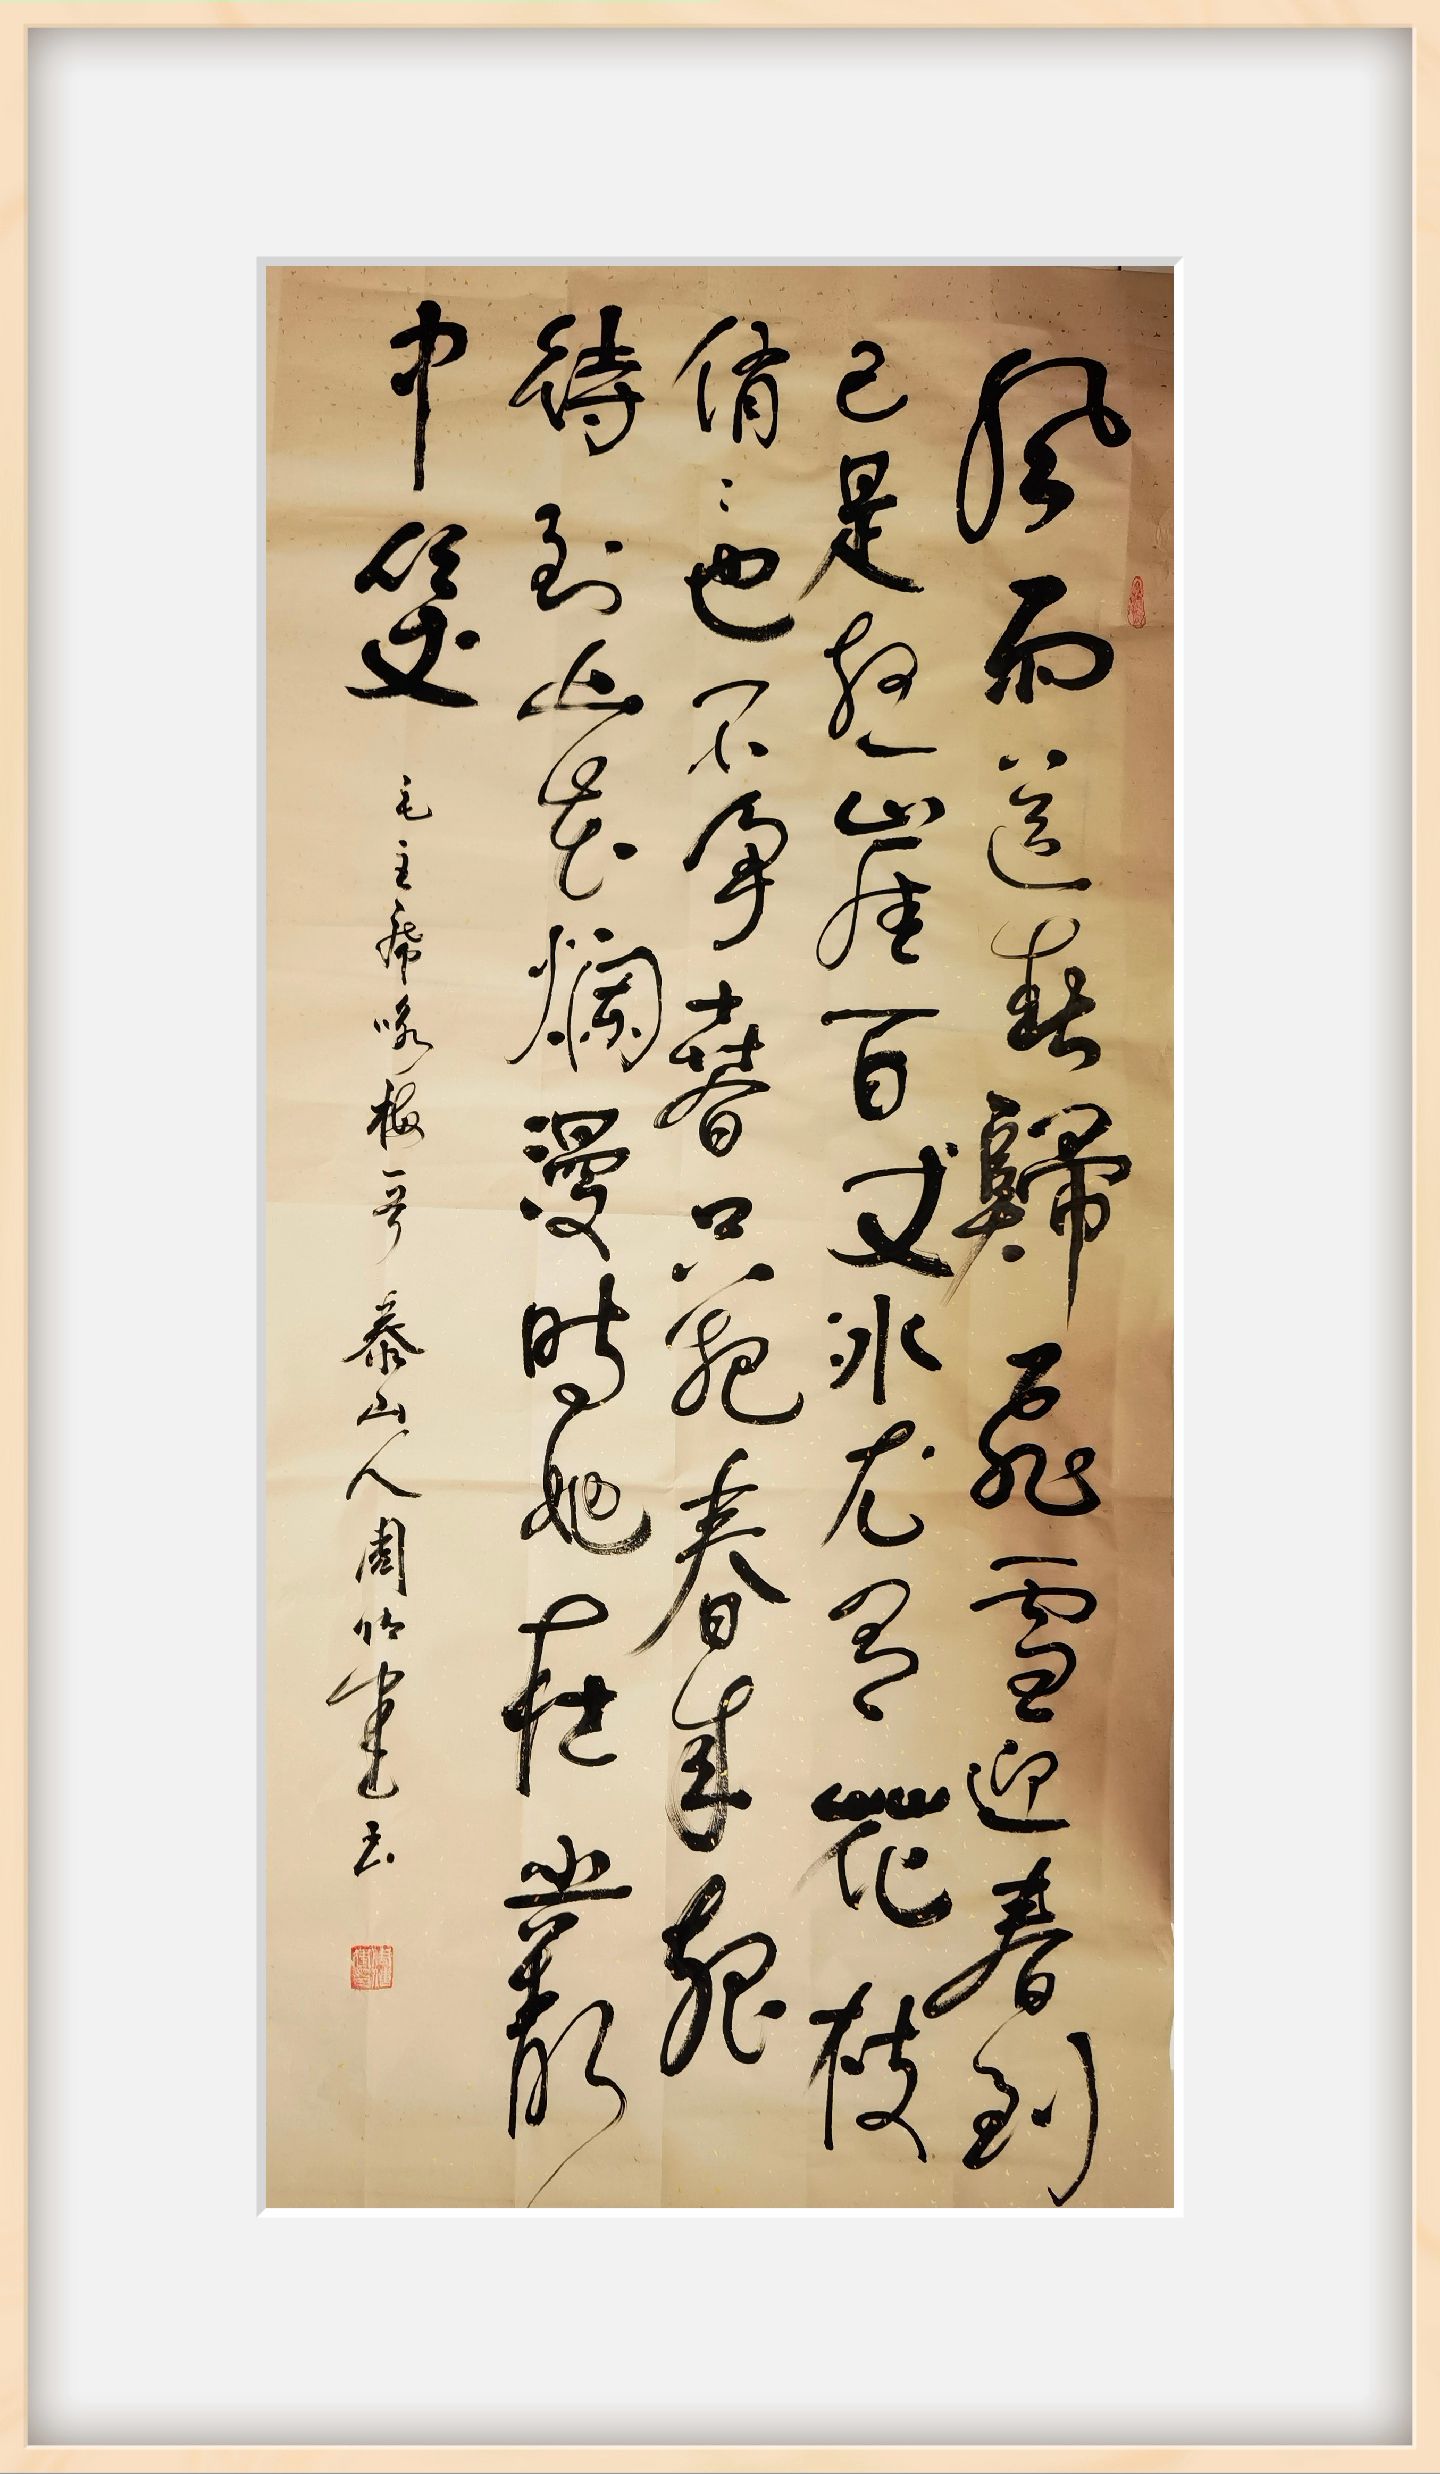 風雨送春歸飛雪迎春到
已是懸崖百丈冰尤有花枝
俏〻也不爭春只把春來報
待到山花爛漫時她在叢
中笑
毛主席咏梅一首 泰山人周竹建書